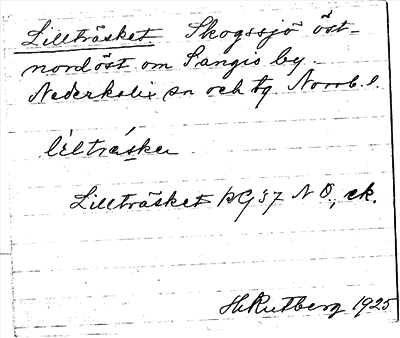 Lillträsket. Skogssjö öst-
nordöst om Sangis by.
Nederkalix sn och tg. Norrb. l.
lilträsket
Lillträsket KG 37 N Ö, ek.
H Rutberg 1925